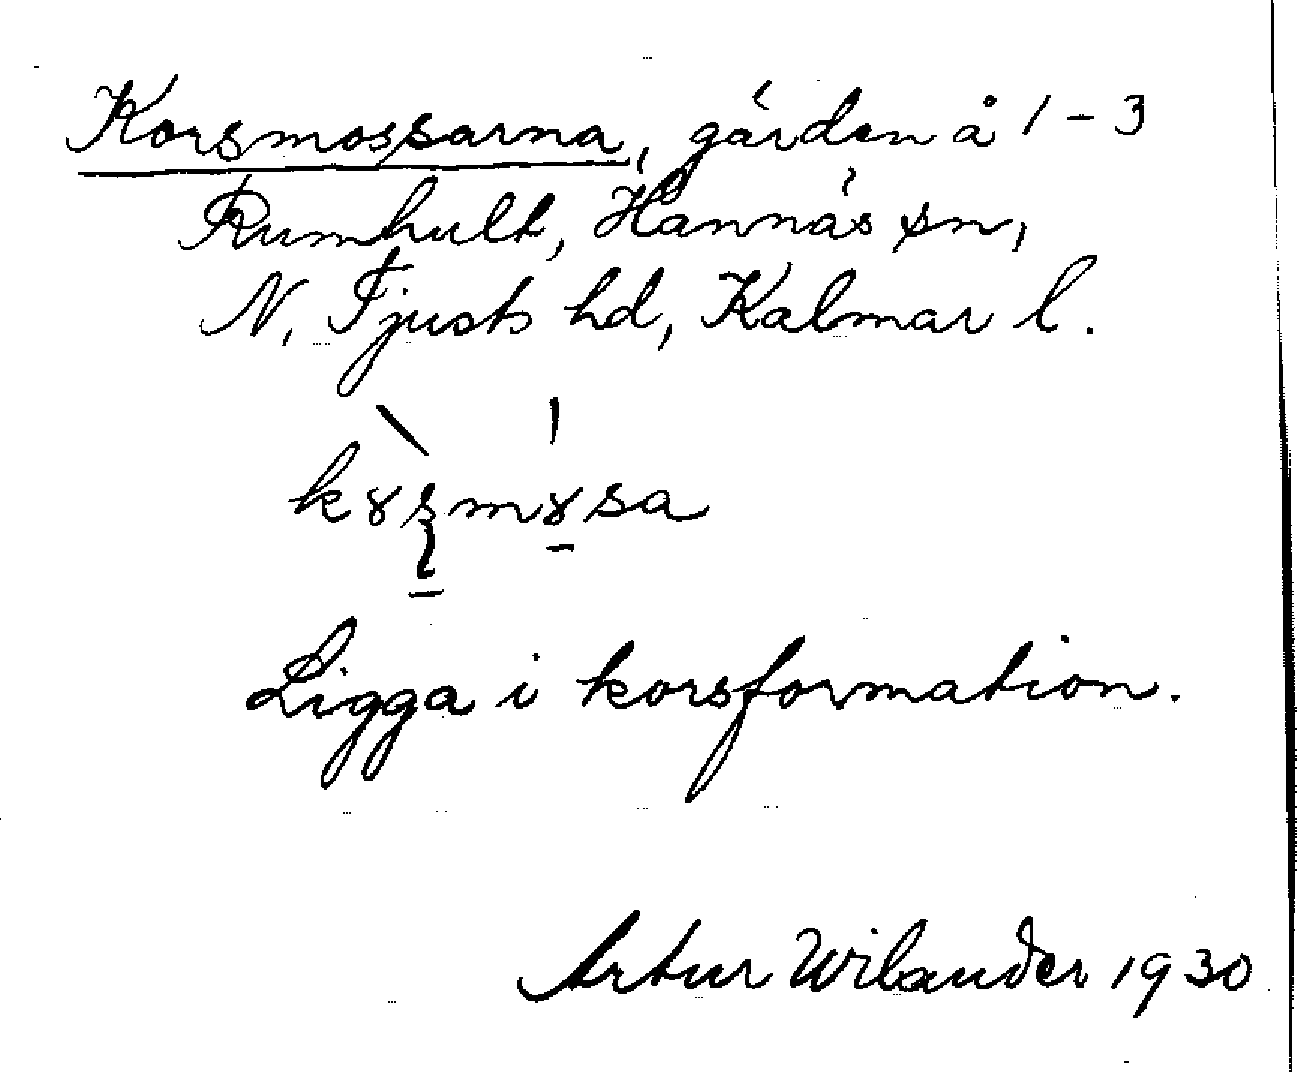 Korsmossarna, gärden å 1-3
Rumhult, Hannäs sn,
N. Tjusts hd, Kalmar l.
Ligga i korsformation.
Artur Wilander 1930